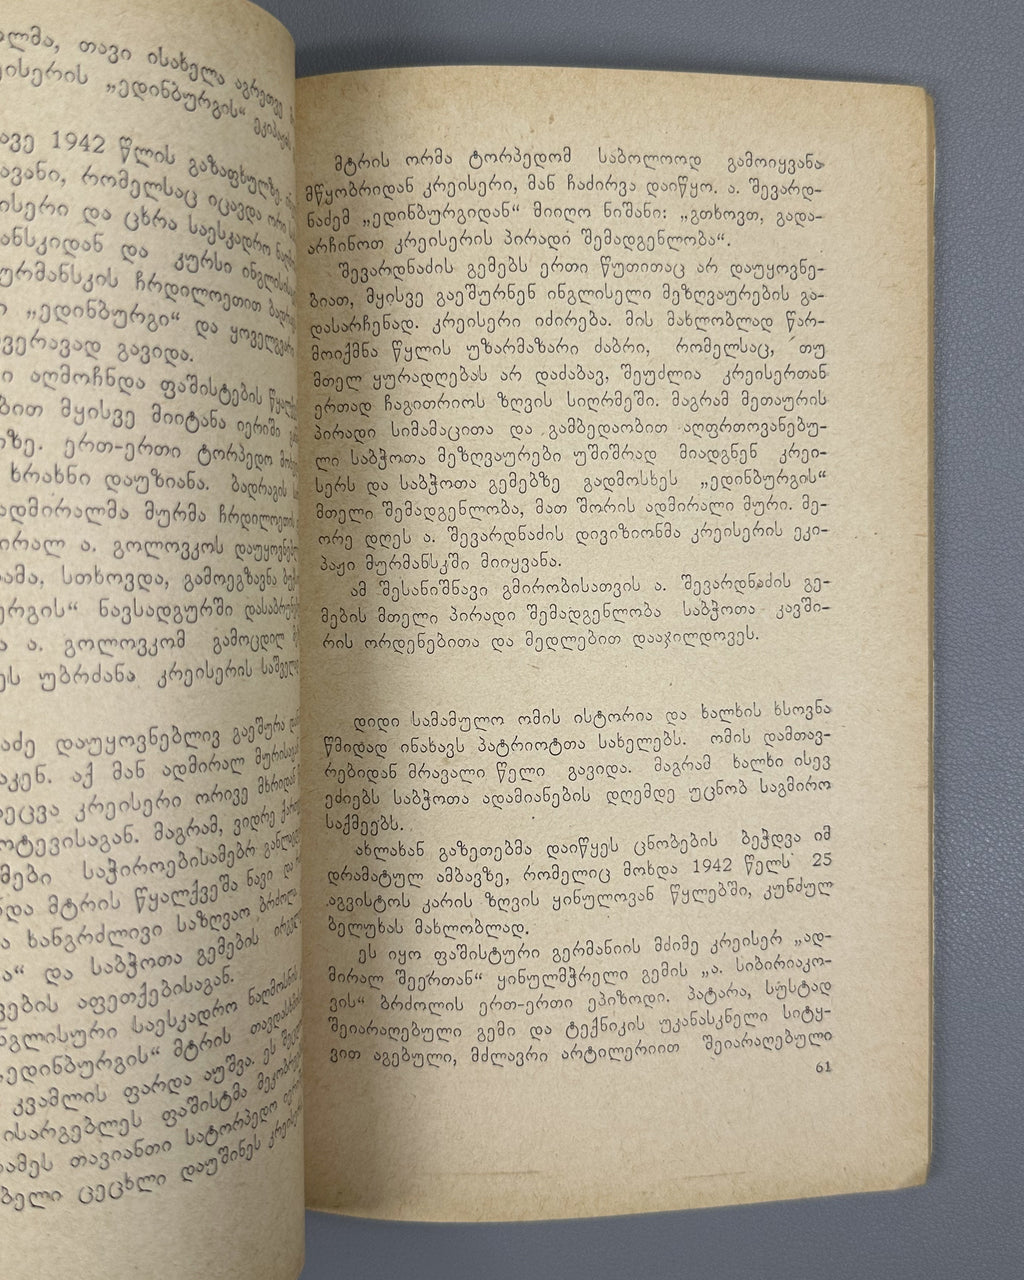 ალმა, თავი ისახელა აგრეთვე
ეისერის „ედინბურგის“ ეკიპაჟის
ავე 1942 წლის გაზაფხულზე.
ავანი, რომელსაც იცავდა ორი
ისერი და ცხრა საესკადრო
ანსკიდან და კურსი ინგლისისაკ
ურმანსკის ჩრდილოეთით
„ედინბურგი“ და ყოველგვარი
ვერავად გავიდა.
ი აღმოჩნდა ფაშისტების
ბით მყისვე მიიტანა იერიში
იზე. ერთ-ერთი ტორპედო
ხრახნი დაუზიანა. ბადრაგის
ადმირალმა მურმა ჩრდილოეთის
ირალ ა. გოლოვკოს
ამა, სთხოვდა, გამოეგზავნა
ურგის“ ნავსადგურში
ა ა. გოლოვკომ გამოცდილ
ეს უბრძანა კრეისერის
აძე დაუყოვნებლივ გაეშურა
აკენ. აქ მან ადმირალ
ეცვა კრეისერი ორივე მხრიდან
ოტევისაგან. მაგრამ, ვიდრე
მები საჭიროებისამებრ
და მტრის წყალქვეშა ნავი და
ა ხანგრძლივი საზღვაო ბრძოლა.
ა“ და საბჭოთა გემების
ვების აფეთქებისაგან.
ნგლისური საესკადრო
„ედინბურგის“ მტრის
კვამლის ფარდა აუშვა. ეს
ისარგებლეს ფაშისტმა
ამეს თავიანთი სატორპედო
ბელი ცეცხლი დაუშინეს
მტრის ორმა ტორპედომ საბოლოოდ გამოიყვანა
მწყობრიდან კრეისერი, მან ჩაძირვა დაიწყო. ა. შევარდ-
ნაძემ „ედინბურგიდან“ მიიღო ნიშანი: „გთხოვთ, გადა-
არჩინოთ კრეისერის პირადი შემადგენლობა“.
შევარდნაძის გემებს ერთი წუთითაც არ დაუყოვნე-
ბიათ, მყისვე გაეშურნენ ინგლისელი მეზღვაურების გა-
დასარჩენად. კრეისერი იძირება. მის მახლობლად წარ-
მოიქმნა წყლის უზარმაზარი ძაბრი, რომელსაც, თუ
მთელ ყურადღებას არ დაძაბავ, შეუძლია კრეისერთან
ერთად ჩაგითრიოს ზღვის სიღრმეში. მაგრამ მეთაურის
პირადი სიმამაცითა და გამბედაობით აღფრთოვანებუ-
ლი საბჭოთა მეზღვაურები უშიშრად მიადგნენ კრეი-
სერს და საბჭოთა გემებზე გადმოსხეს „ედინბურგის“
მთელი შემადგენლობა, მათ შორის ადმირალი მური. მე-
ორე დღეს ა. შევარდნაძის დივიზიონმა კრეისერის ეკი-
პაჟი მურმანსკში მიიყვანა.
ამ შესანიშნავი გმირობისათვის ა. შევარდნაძის გე-
მების მთელი პირადი შემადგენლობა საბჭოთა კავში-
რის ორდენებითა და მედლებით დააჯილდოვეს.
დიდი სამამულო ომის ისტორია და ხალხის ხსოვნა
წმიდად ინახავს პატრიოტთა სახელებს. ომის დამთავ-
რებიდან მრავალი წელი გავიდა. მაგრამ ხალხი ისევ
ეძიებს საბჭოთა ადამიანების დღემდე უცნობ საგმირო
საქმეებს.
ახლახან გაზეთებმა დაიწყეს ცნობების ბეჭდვა იმ
დრამატულ ამბავზე, რომელიც მოხდა 1942 წელს 25
აგვისტოს კარის ზღვის ყინულოვან წყლებში, კუნძულ
ბელუხას მახლობლად.
ეს იყო ფაშისტური გერმანიის მძიმე კრეისერ „ად-
მირალ შეერთან“ ყინულმჭრელი გემის „ა. სიბირიაკო-
ვის“ ბრძოლის ერთ-ერთი ეპიზოდი. პატარა, სუსტად
შეიარაღებული გემი და ტექნიკის უკანასკნელი სიტყ-
ვით აგებული, მძლავრი არტილერიით შეიარაღებული
61